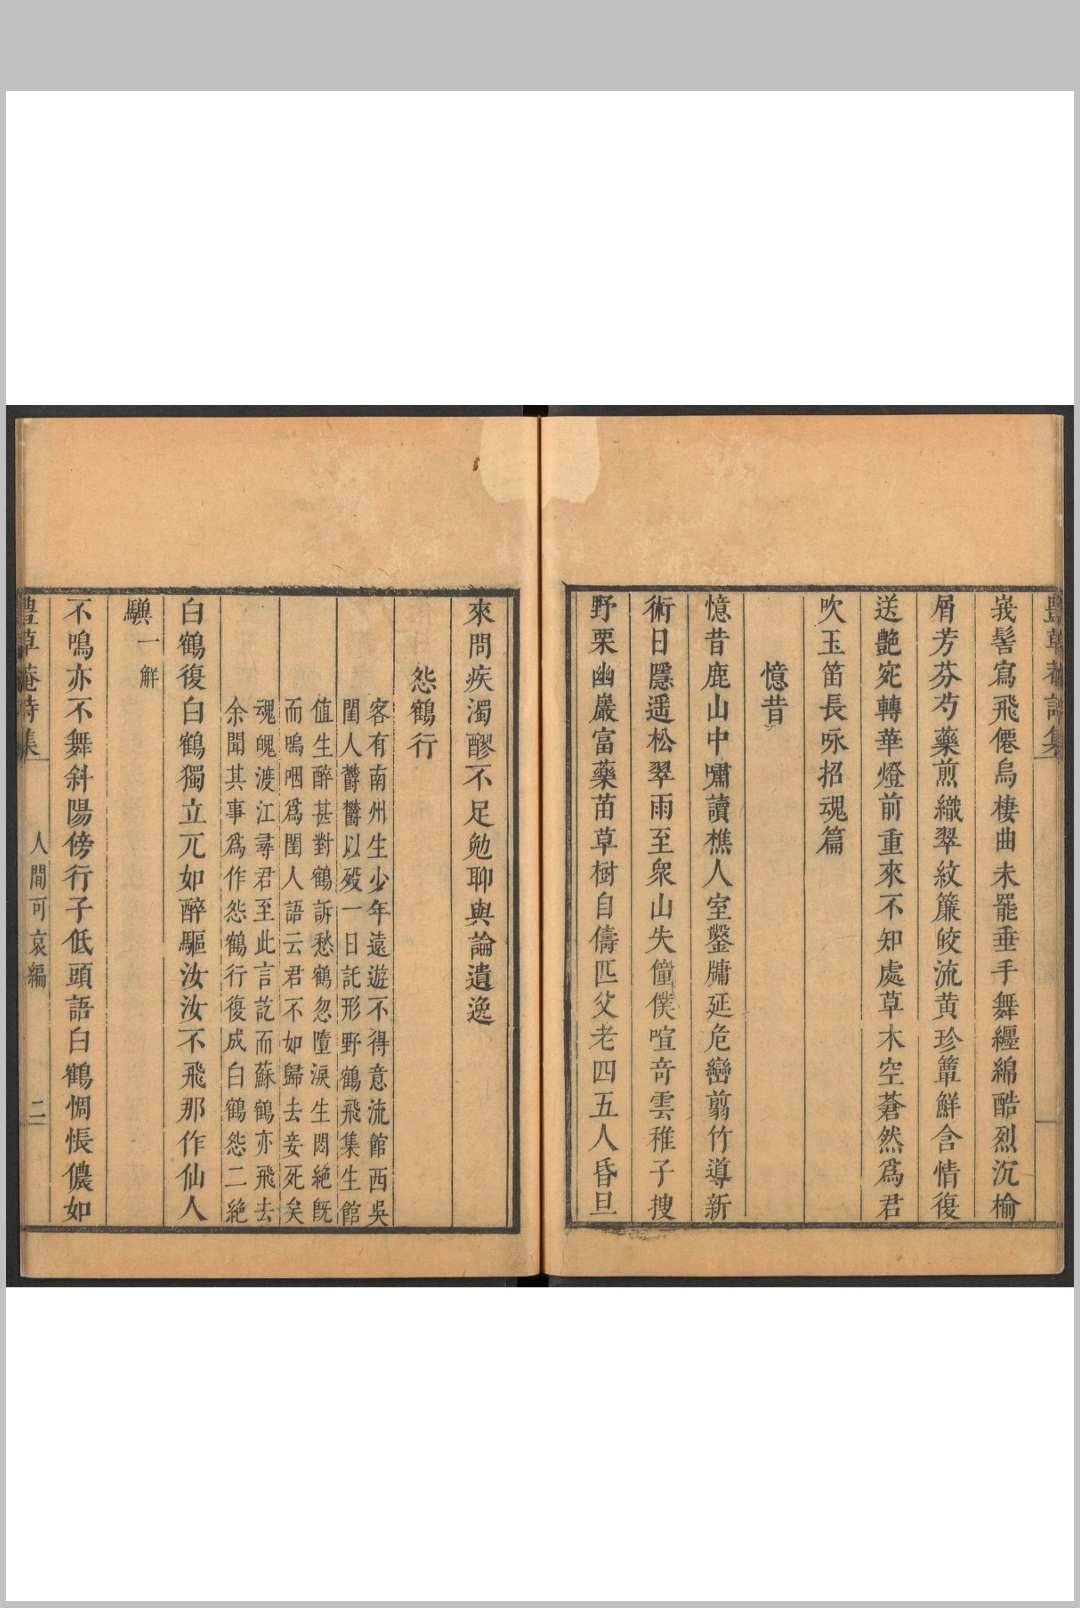 峩髻寫飛僊烏棲曲未罷垂手舞纒綿酷烈沉榆
屑芳芬芍藥煎織翠紋簾皎流黄珍簟鮮含情復
送艷宛轉華燈前重來不知處草木空蒼然爲君
吹玉笛長咏招魂篇
憶昔
憶昔鹿山中嘯讀樵人室鑿牗延危巒翦竹導新
術日隱遥松翠雨至衆山失僮僕喧竒雲稚子搜
野栗幽巖富藥苗草樹自儔匹父老四五人昏旦
來問疾濁醪不足勉聊與論遺逸
怨鶴行
客有南州生少年遠遊不得意流館西吳
閨人欝欝以殁一日託形野鶴飛集生館
值生醉甚對鶴訴愁鶴忽墮淚生悶絶旣
而嗚咽爲閨人語云君不如歸去妾死矣
魂魄渡江尋君至此言訖而蘇鶴亦飛去
余聞其事爲作怨鶴行復成白鶴怨二絶
白鶴復白鶴獨立兀如醉驅汝汝不飛那作仙人
驥一解
不鳴亦不舞斜陽傍行子低頭語白鶴惆悵儂如
豐草菴詩集 人間可哀編 二